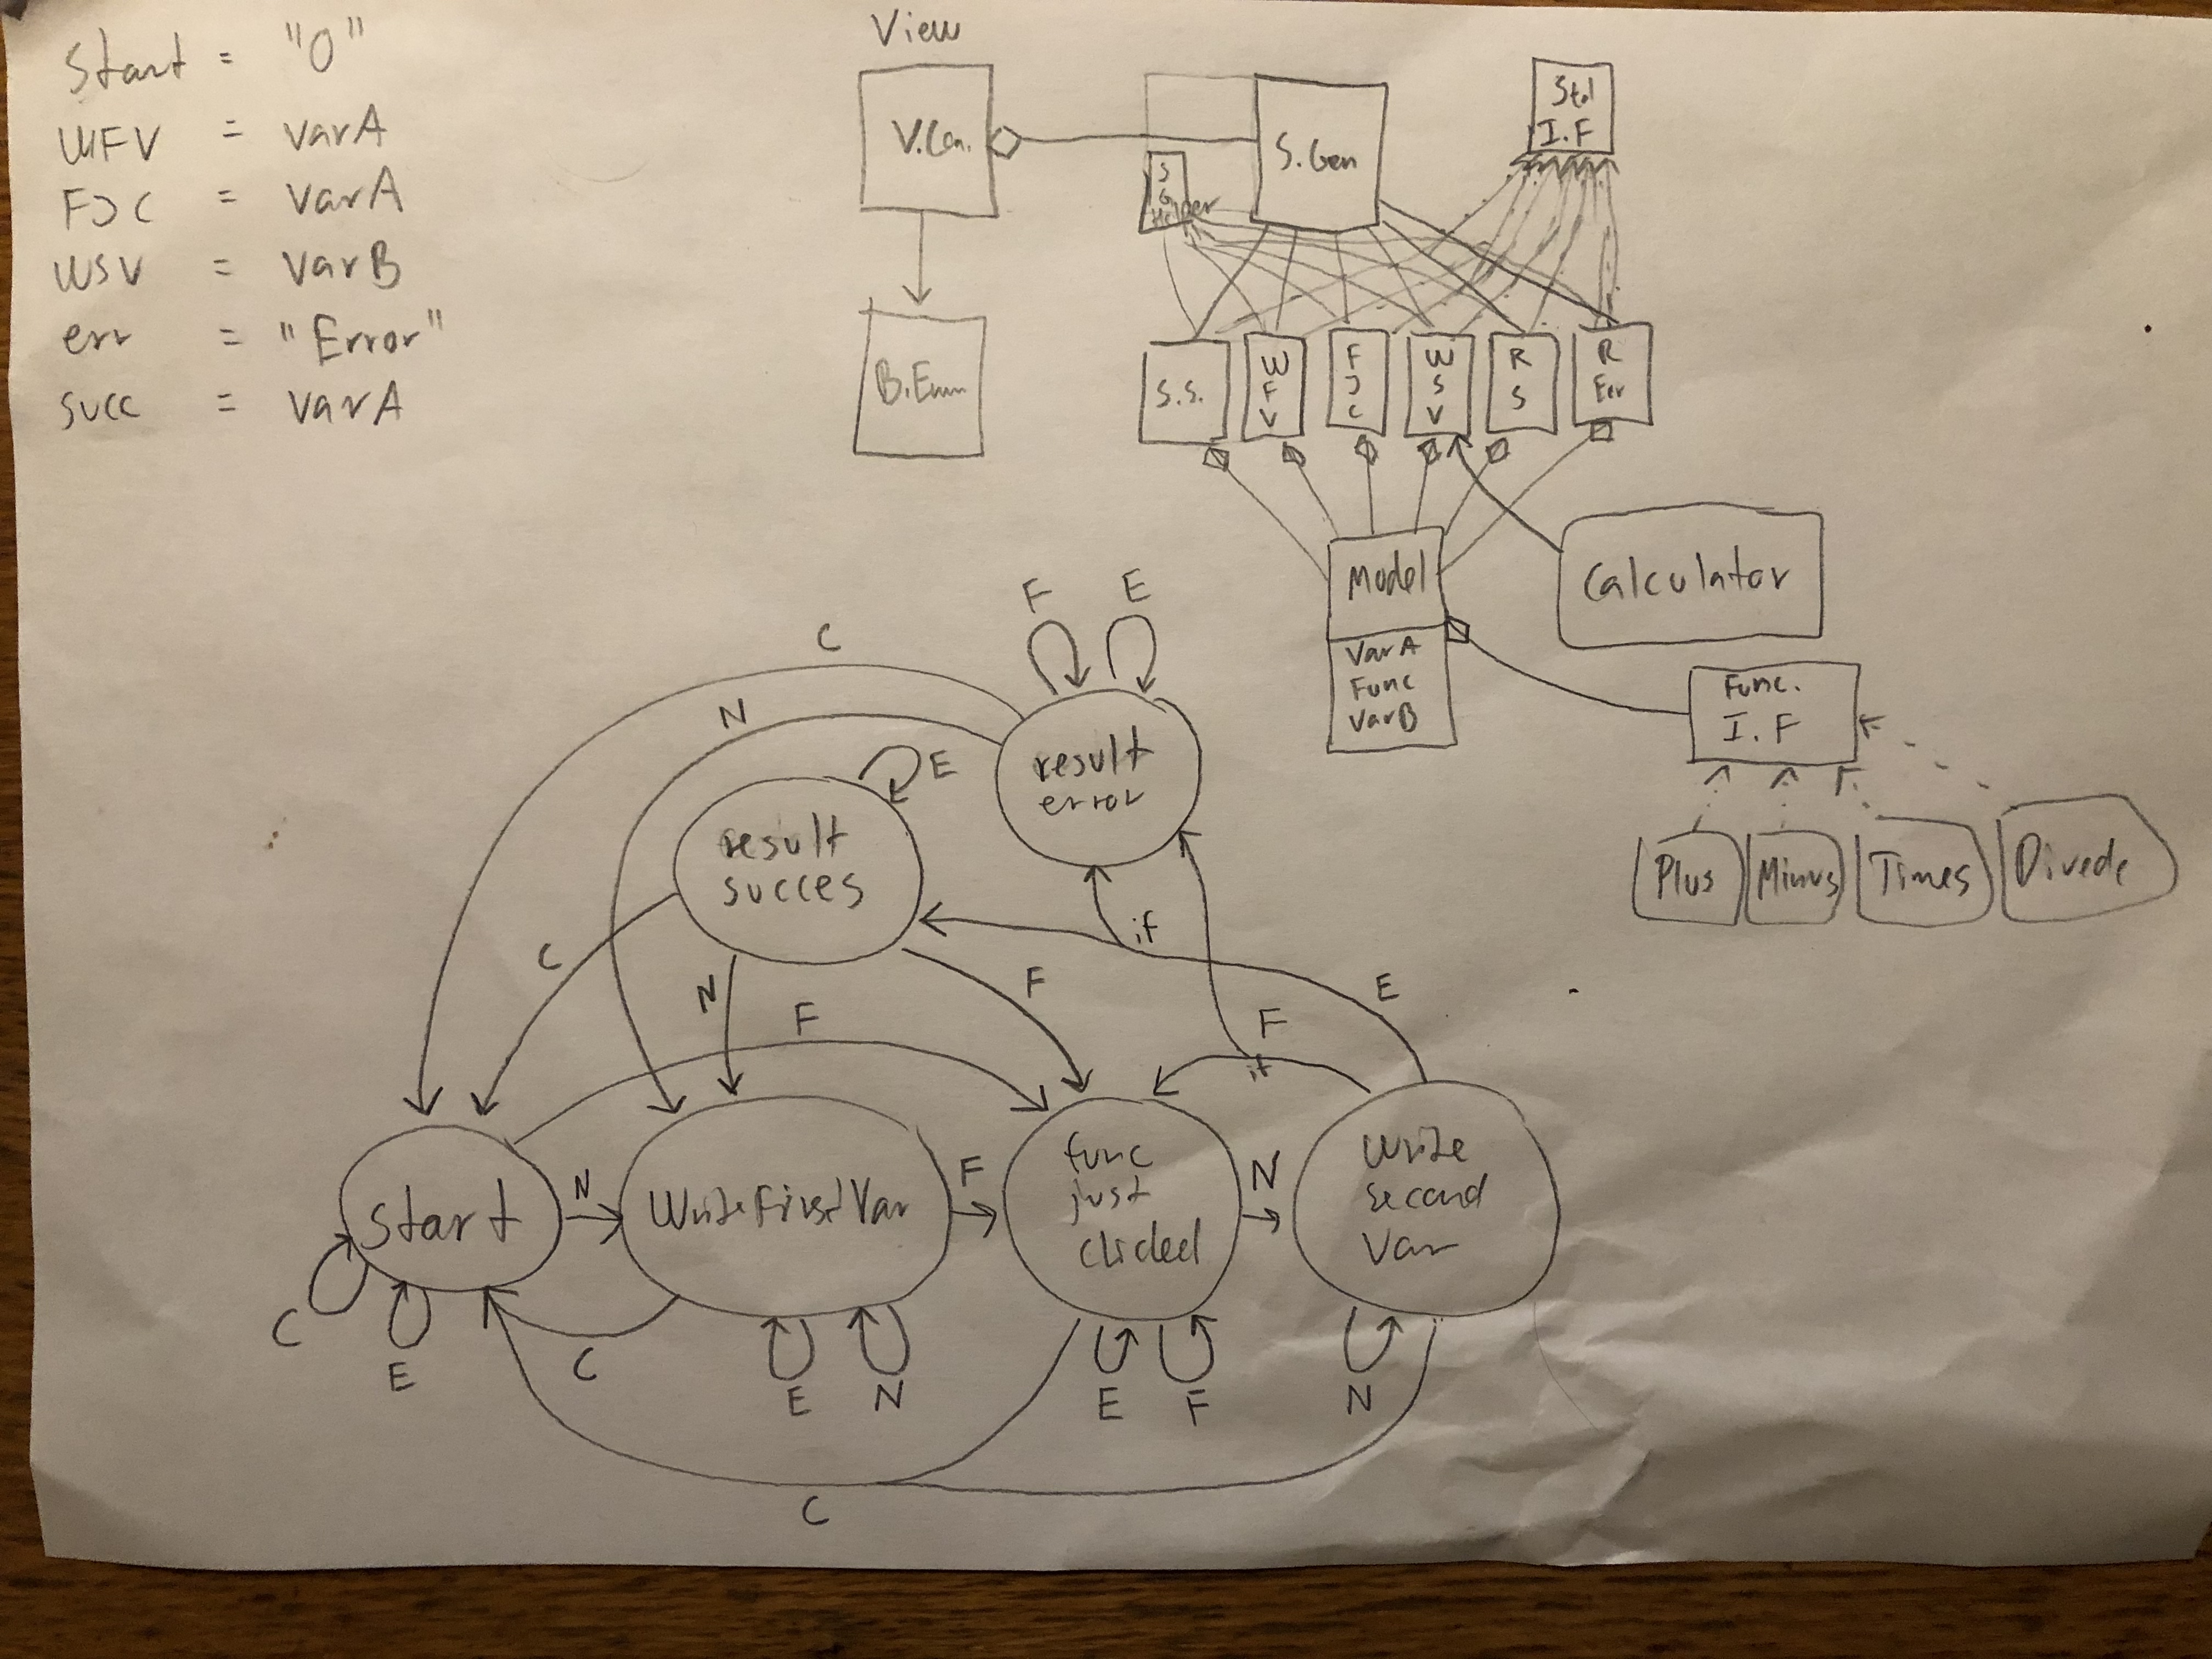 Start = "0"
WFV = varA
FJC = varA
WSV = varB
err = "Error"
succ = varA
View
V.Con.
S.Gen
S
G
Helper
I.F
B.Enum
S.S.
W
F
V
F
J
C
W
S
V
R
S
R
Err
Model
VarA
Func
VarB
Calculator
Func.
I.F
Plus
Minus
Times
Divede
F
E
C
N
E
result
error
result
succes
C
N
F
if
E
F
F
if
Start
N
WriteFirstVar
F
func
just
clicked
N
Write
second
Var
C
E
C
E
N
E
F
N
C